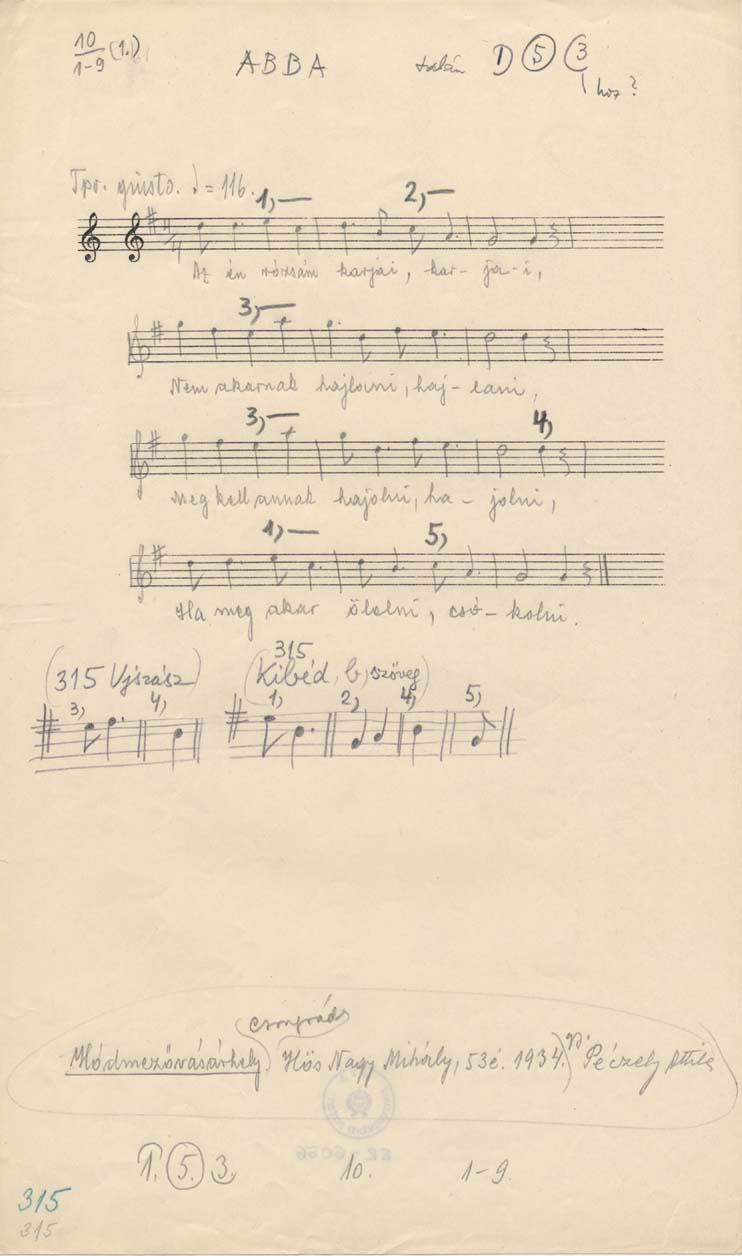 10/1-9 (1.) ABBA talán 1) 5 3
hoz?
Tpo. giusto. ♩ = 116.
1,— 2,—
Az én rózsám karjai, kar- ja-i,
3,—
Nem akarnak hajlani, haj-lani,
3,— 4,
Meg kell annak hajolni, ha- jolni,
1,— 5,
Ha meg akar ölelni, csó-kolni.
(315 Ujszász) (315 Kibéd, b, szöveg)
3, 4, 1, 2, 4, 5,
Csongrád
Hódmezővásárhely Hős Nagy Mihály, 53é. 1934. gy. Péczely Attila
1. 5. 3. 10. 1-9.
315
315